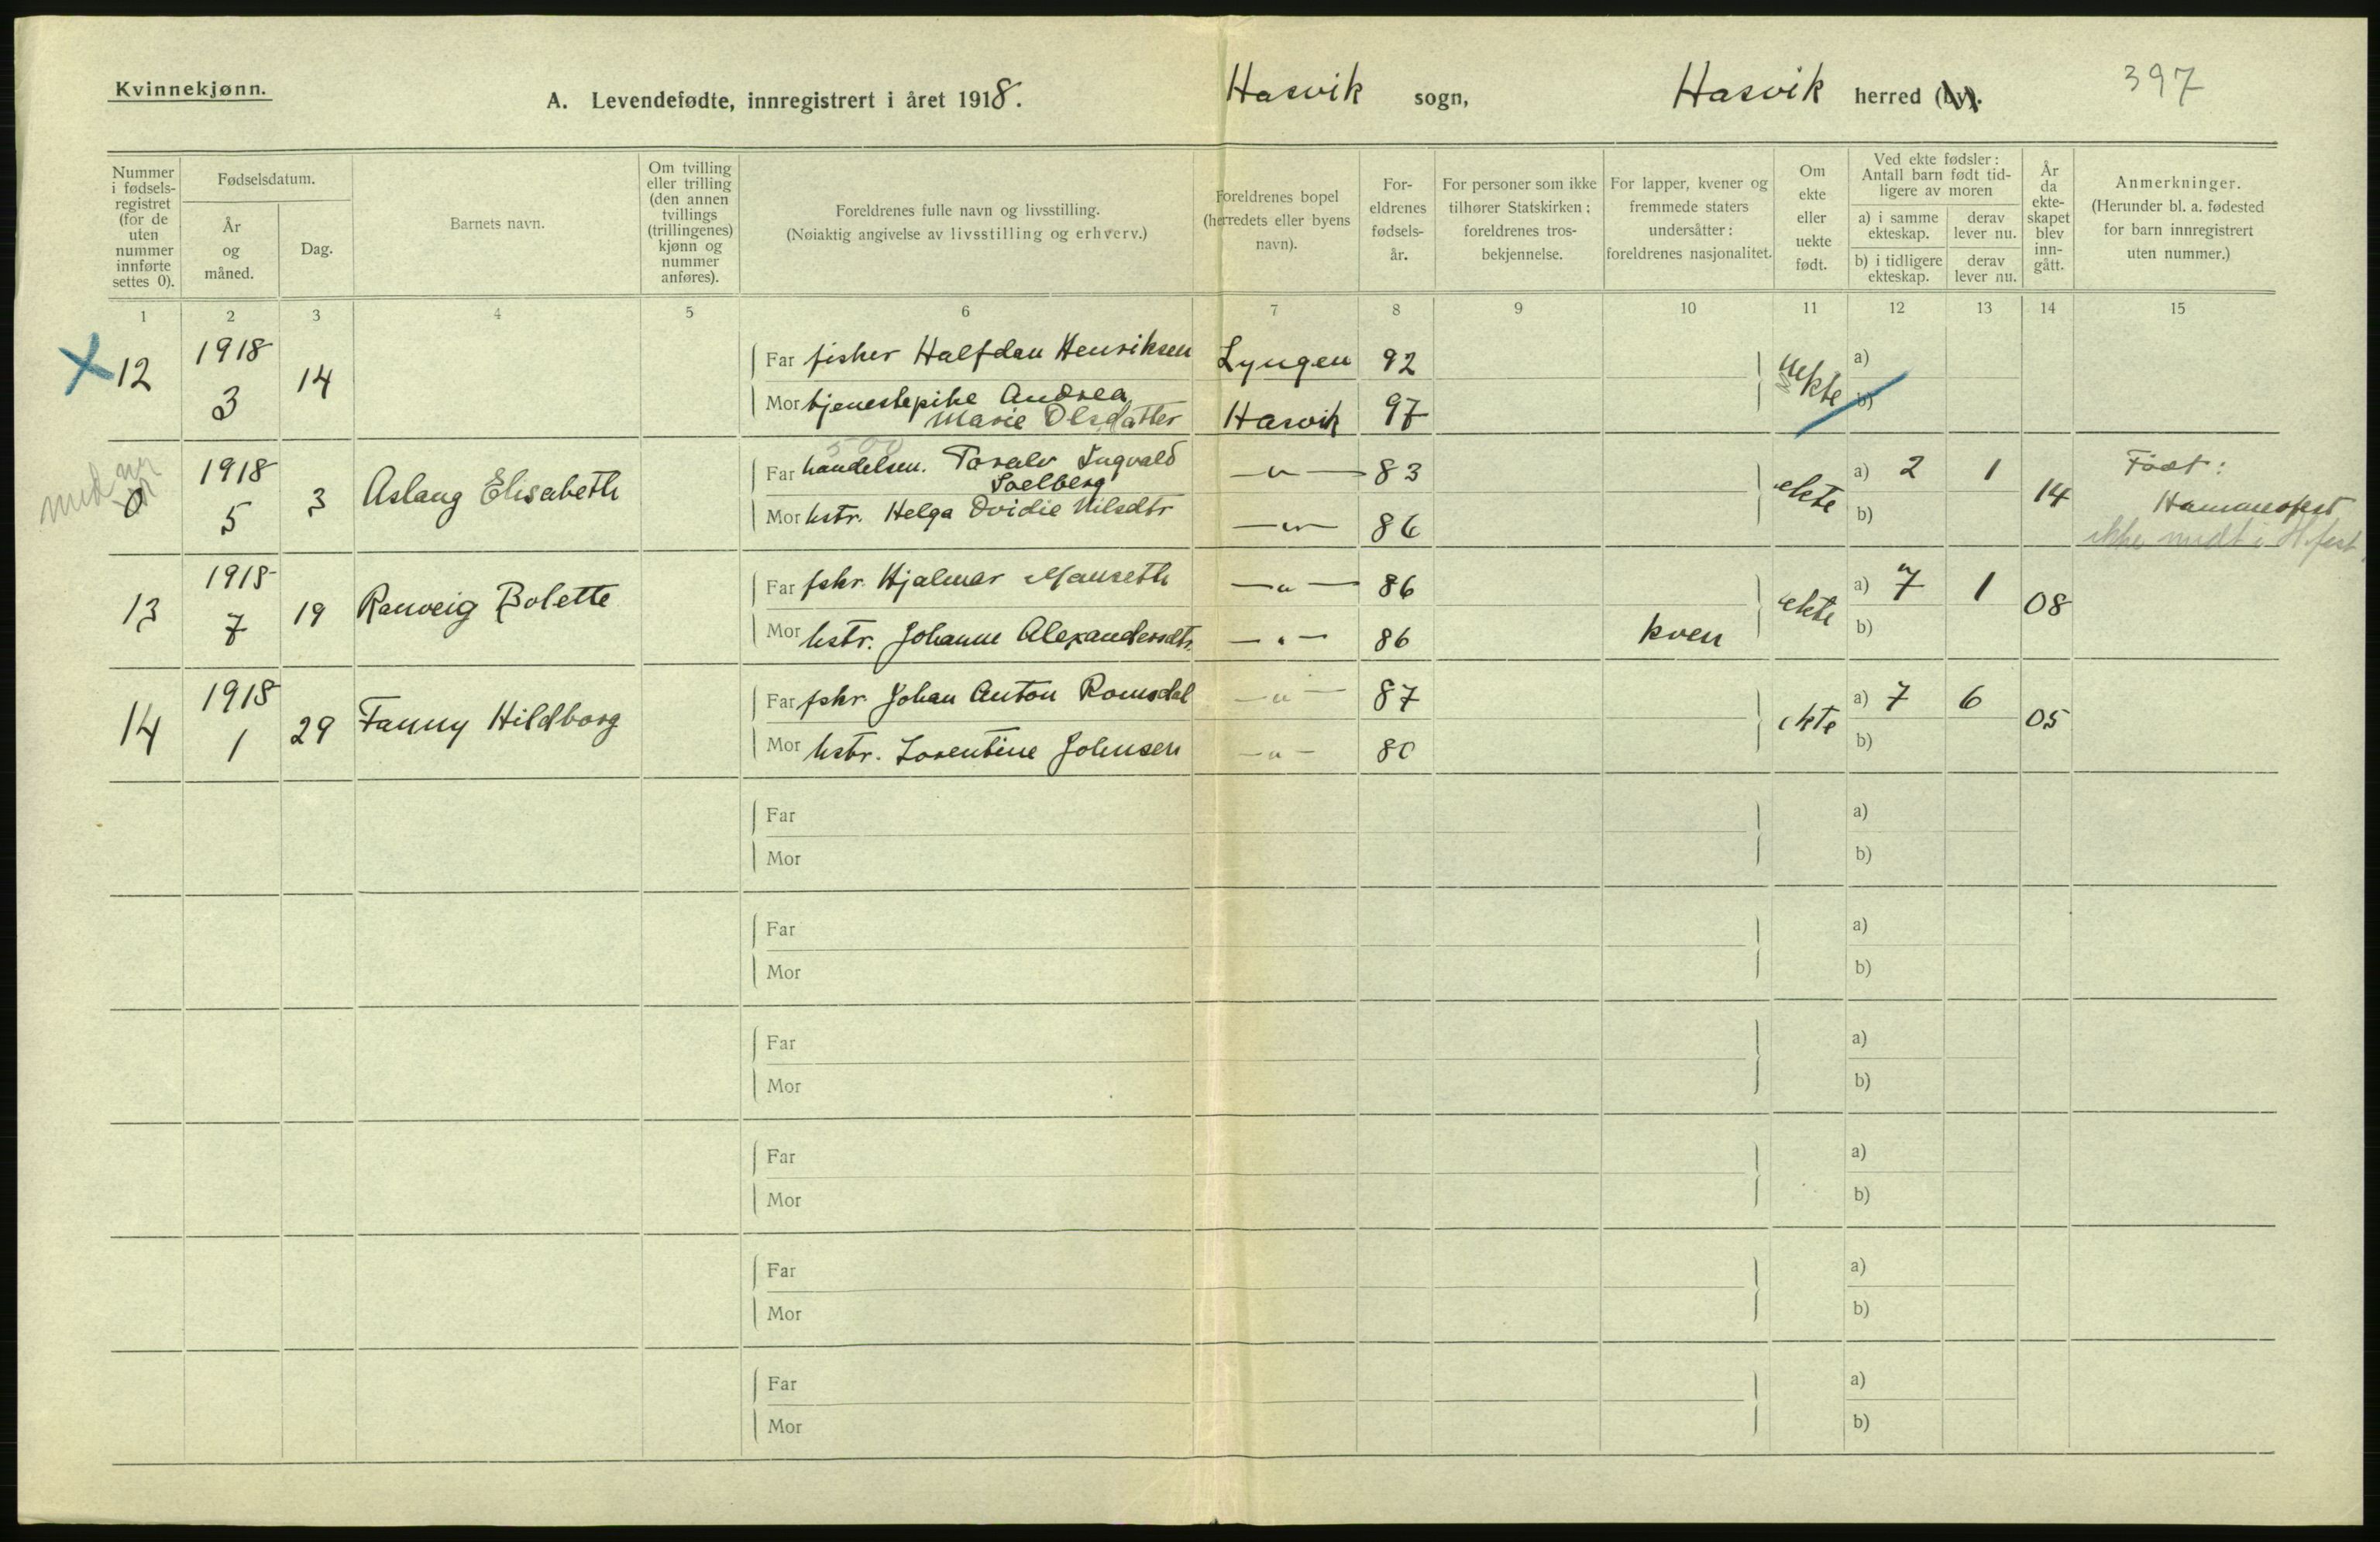 Kvinnekjønn.
A. Levendefødte, innregistrert i året 1918.
Hasvik sogn,
Hasvik herred (by).
397
Nummer i fødsels-registret (for de uten nummer innførte settes 0).
Fødselsdatum.
År og måned.
Dag.
Barnets navn.
Om tvilling eller trilling (den annen tvillings (trillingenes) kjønn og nummer anføres).
Foreldrenes fulle navn og livsstilling.
(Nøiaktig angivelse av livsstilling og erhverv.)
Foreldrenes bopel (herredets eller byens navn).
For-eldrenes fødsels-år.
For personer som ikke tilhører Statskirken: foreldrenes tros-bekjennelse.
For lapper, kvener og fremmede staters undersåtter: foreldrenes nasjonalitet.
Om ekte eller uekte født.
Ved ekte fødsler: Antall barn født tid-ligere av moren
a) i samme ekteskap.
derav lever nu.
b) i tidligere ekteskap.
derav lever nu.
År da ekte-skapet blev inn-gått.
Anmerkninger.
(Herunder bl. a. fødested for barn innregistrert uten nummer.)
1 2 3 4 5 6 7 8 9 10 11 12 13 14 15
X 12 1918 3 14
Far fisker Halfdan Henriksen Lyngen 92
uekte a)
Mor tjenestepike Andrea
Marie Olsdatter Hasvik 97
b)
0 1918 5 3 Aslaug Elisabeth
Far handelsm. Toralv Ingvald
Soelberg —"— 83
ekte a) 2 1 14 Født:
Hammerfest
Mor hstr. Helga Ovidie Nilsdtr —"— 86
b)
ikke medt i H.fest
13 1918 7 19 Ranveig Bolette
Far fskr. Hjalmar Mauseth —"— 86
ekte a) 7 1 08
Mor hstr. Johanne Alexandersdtr. —"— 86 kven
b)
14 1918 1 29 Fanny Hildborg
Far fskr. Johan Anton Romsdal —"— 87
ekte a) 7 6 05
Mor hstr. Lorentine Johnsen —"— 80
b)
Far a)
Mor b)
Far a)
Mor b)
Far a)
Mor b)
Far a)
Mor b)
Far a)
Mor b)
Far a)
Mor b)